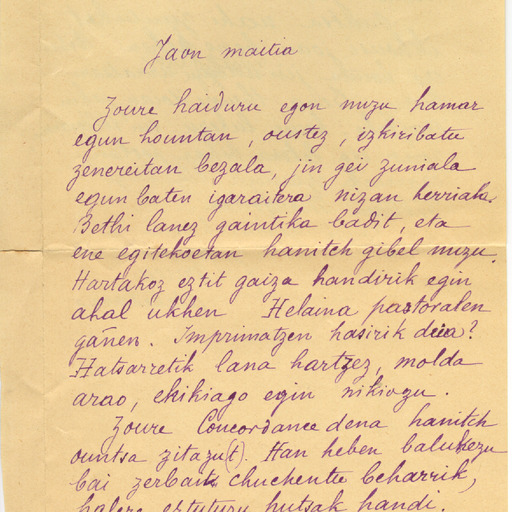 Jaon maitia
Zoure haiduru egon nuzu hamar
egun hountan, oustez, izkiribatu
zenereitan bezala, jin gei zuniala
egun baten igaraitera nizan herriala.
Bethi lanez gaintika badit, eta
ene egitekoetan hanitch gibel nuzu.
Hartakoz eztit gaiza handirik egin
ahal ukhen Helaina pastoralen
gañen. Imprimatzen hasirik deia?
Hatsarretik lana hartzez, molda
arao, ehikiago egin nikiozu.
Zoure Concordance dena hanitch
ountsa zitazu(t). Han heben balukezu
bai zerbait chuchentu beharrik,
halere eztutuzu hutsak handi.